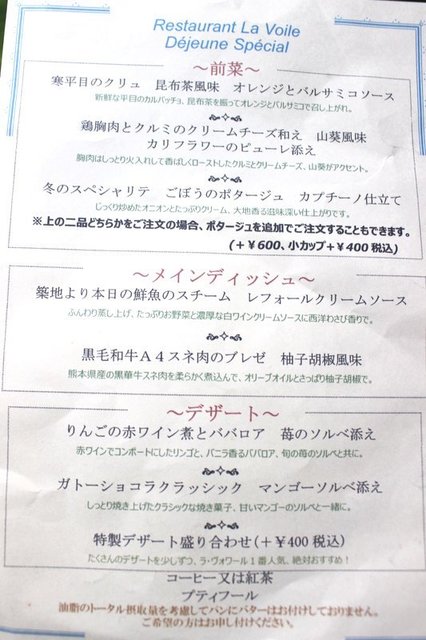 Restaurant La Voile
Déjeune Spécial
～前菜～
寒平目のクリュ　昆布茶風味　オレンジとバルサミコソース
新鮮な平目のカルパッチョ、昆布茶を振ってオレンジとバルサミコで召し上がれ。
鶏胸肉とクルミのクリームチーズ和え　山葵風味
カリフラワーのピューレ添え
胸肉はしっとり火入れして香ばしくローストしたクルミとクリームチーズ、山葵がアクセント。
冬のスペシャリテ　ごぼうのポタージュ　カプチーノ仕立て
じっくり炒めたオニオンとたっぷりクリーム、大地香る滋味深い仕上がりです。
※上の二品どちらかをご注文の場合、ポタージュを追加でご注文することもできます。
（＋￥600、小カップ＋￥400 税込）
～メインディッシュ～
築地より本日の鮮魚のスチーム　レフォールクリームソース
ふんわり蒸し上げ、たっぷりお野菜と濃厚な白ワインクリームソースに西洋わさび香りで。
黒毛和牛Ａ４スネ肉のブレゼ　柚子胡椒風味
熊本県産の黒華牛スネ肉を柔らかく煮込んで、オリーブオイルとさっぱり柚子胡椒で。
～デザート～
りんごの赤ワイン煮とババロア　苺のソルベ添え
赤ワインでコンポートにしたリンゴと、バニラ香るババロア、旬の苺のソルベと共に。
ガトーショコラクラッシック　マンゴーソルベ添え
しっとり焼き上げたクラシックな焼き菓子、甘いマンゴーのソルベと一緒に。
特製デザート盛り合わせ（＋￥400 税込）
たくさんのデザートを少しずつ、ラ・ヴォワール１番人気、絶対おすすめ！
コーヒー又は紅茶
プティフール
油脂のトータル摂取量を考慮してパンにバターはお付けしておりません。
ご希望の方はお申し付けください。